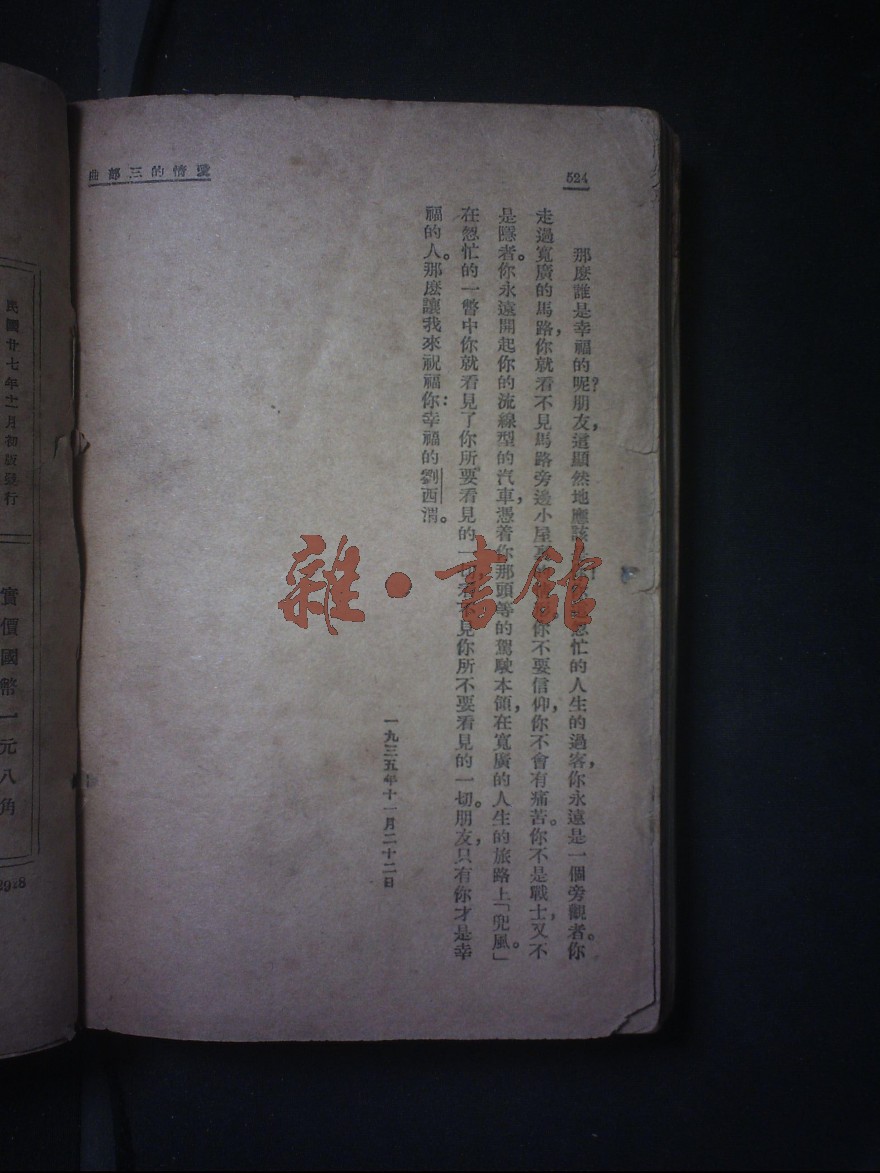 524
愛情的三部曲
那麽誰是幸福的呢？朋友，這顯然地應該 怱忙的人生的過客，你永遠是一個旁觀者。你
走過寬廣的馬路，你就看不見馬路旁邊小屋裏 你不要信仰，你不會有痛苦。你不是戰士，又不
是隱者。你永遠開起你的流線型的汽車，憑着你那頭等的駕駛本領，在寬廣的人生的旅路上「兜風」。
在怱忙的一瞥中你就看見了你所要看見的一切，看不見你所不要看見的一切。朋友，只有你才是幸
福的人。那麽讓我來祝福你：幸福的劉西渭。
一九三五年十一月二十二日
雜·書館
民國廿七年十一月初版發行
實價國幣一元八角